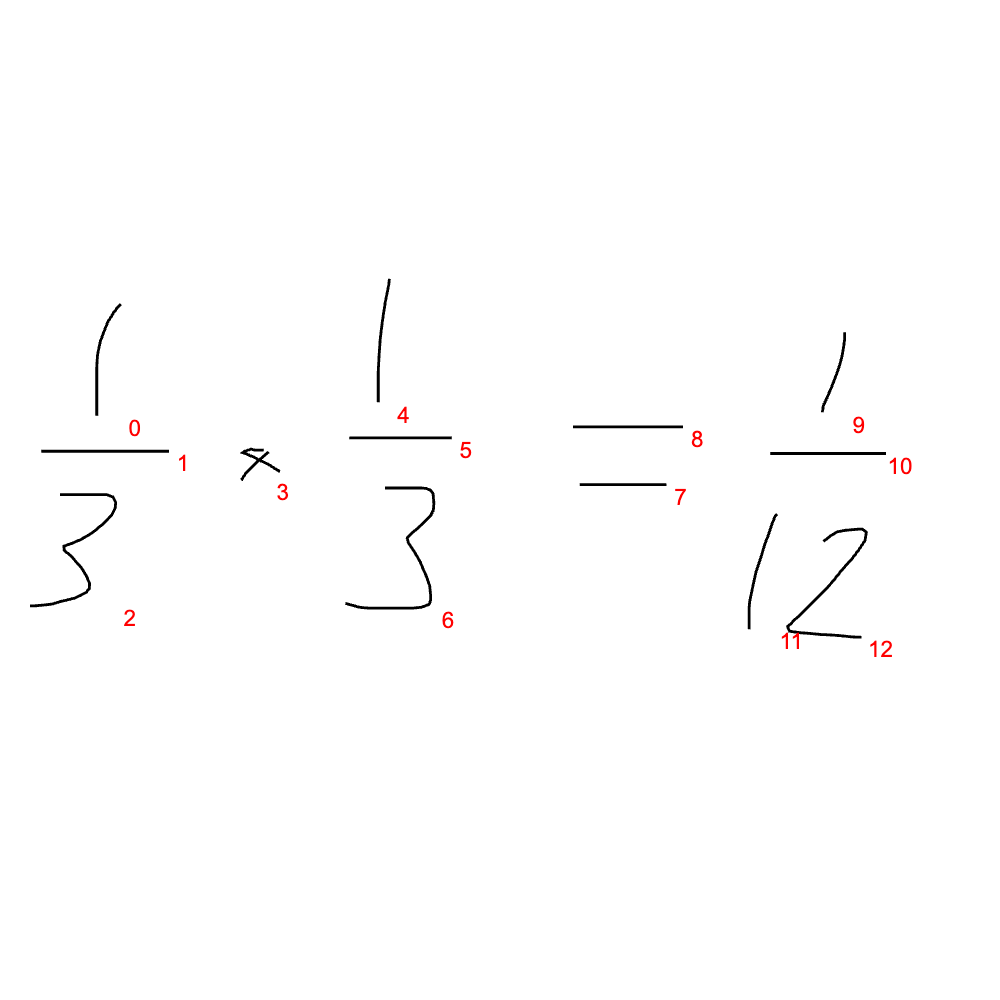 1/3 × 1/3 = 1/12
0 1 2 3 4 5 6 7 8 9 10 11 12